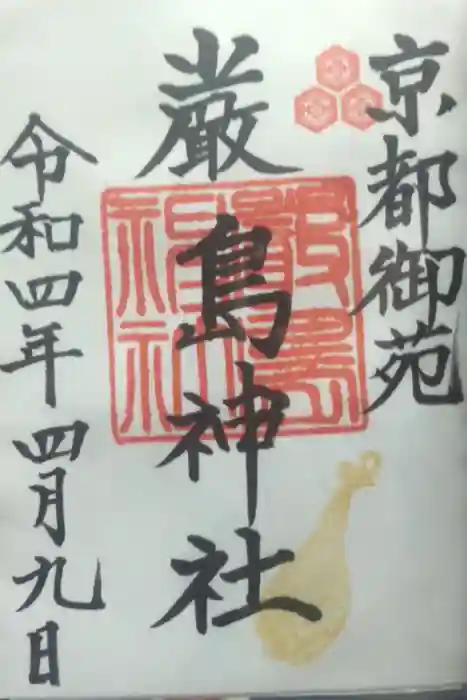 京都御苑
厳島神社
令和四年四月九日